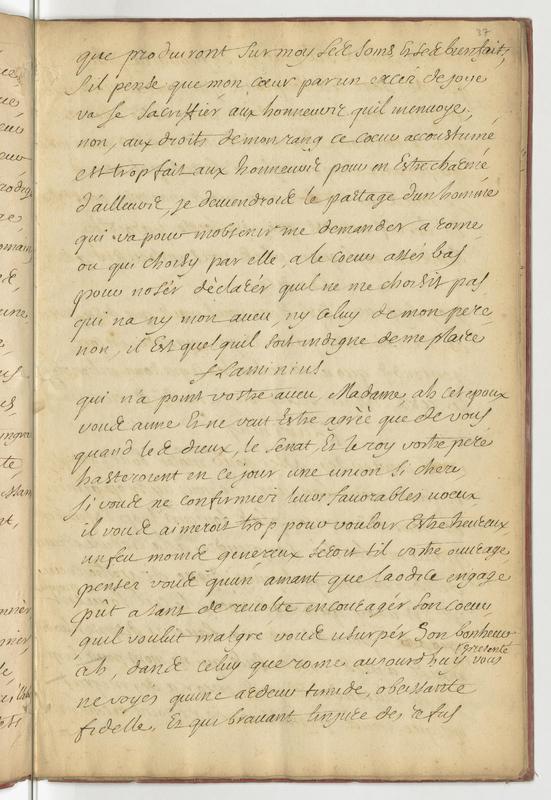 37
que produiront sur moy ses soins, et ses bienfaits,
s'il pense que mon coeur par un excez de joye
va se sacriffier aux honneurs quil menvoye.
non, aux droits de mon rang ce coeur accoustumé
est trop fait aux honneurs pour en Estre charmé
d'ailleurs, je deviendrois le partage dun homme
qui va pour mobtenir me demander a rome
ou qui choisy par elle, a le coeur assés bas
pour nosér déclarér quil ne me choisit pas
qui na ny mon aveu, ny celuy de mon pere
non, il Est quel quil soit indigne de me plaire
flaminius
qui n'a point vostre aveu, Madame, ah cet epoux
vous aime Et ne veut Estre agréé que de vous
quand les dieux, le senat, Et le roy vostre pere
hasteroient en ce jour une union si chere
si vous ne confirmiez leurs favorables voeux
il vous aimeroit trop pour vouloir Estre heureux
un feu moins genereux seroit til vostre ouvrage
pensez vous quun amant que laodice engage
pût a tant de revolte encouragér son coeur
quil voulût malgre vous usurpér son bonheur
ah, dans celuy que rome aujourdhuy vous presente
ne voyes quune ardeur timide, obeissante
fidelle, Et qui bravant linjure des refus